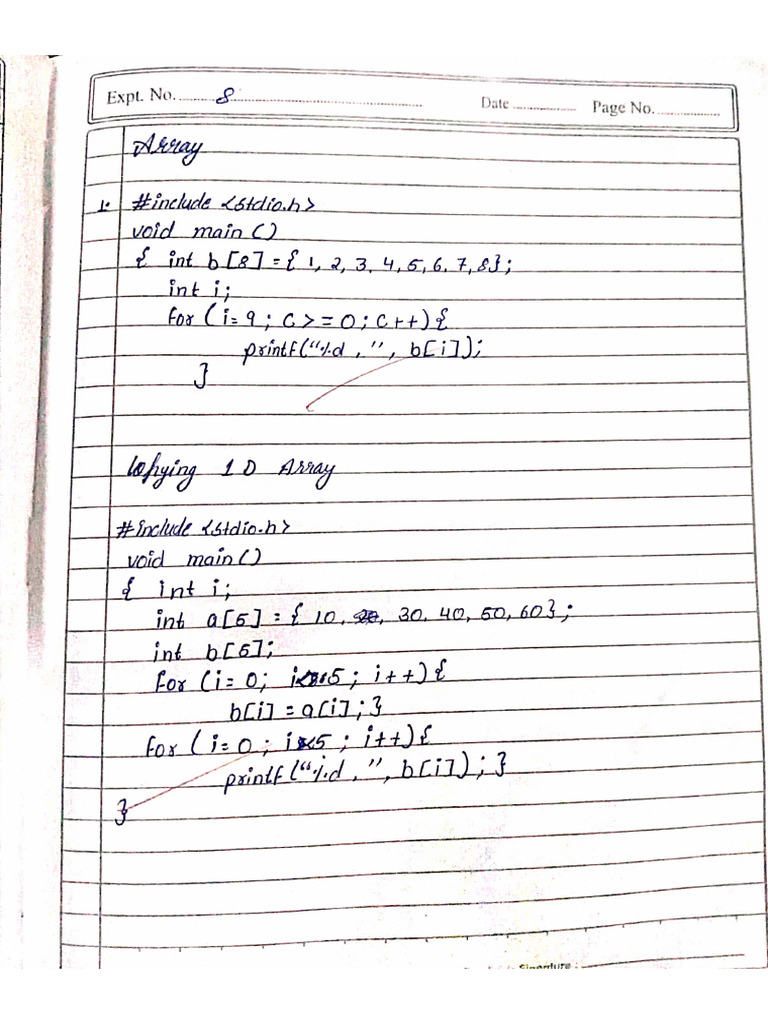 Expt. No. 8 Date Page No.
Array
1. #include <stdio.h>
void main ()
{ int b[8] = { 1, 2, 3, 4, 5, 6, 7, 8};
int i;
for (i= 9 ; C >= 0 ; C++) {
printf("%d ,", b[i]);
}
Copying 1 D Array
#include <stdio.h>
void main ()
{ int i;
int a[5] = { 10, 20, 30, 40, 50, 60};
int b[5];
for (i= 0; i<5 ; i++) {
b[i] = a[i] ; }
for ( i= 0 ; i<5 ; i++) {
printf("%d ,", b[i]) ; }
}